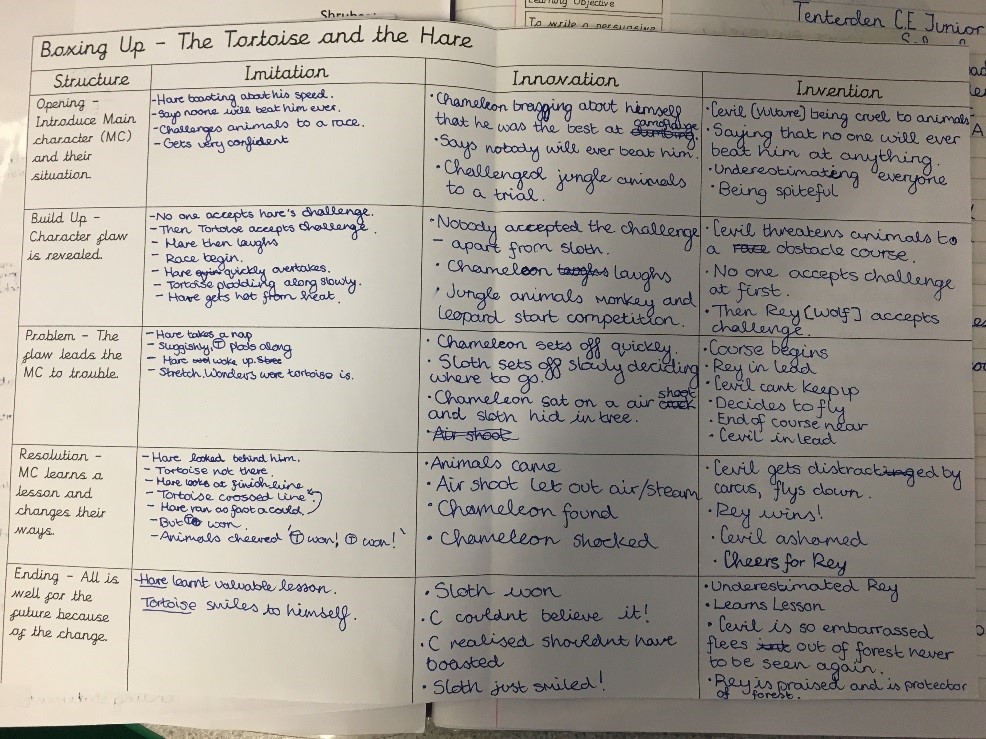 Learning Objective
To write a persuasive
Tenterden CE Junior
Boxing Up - The Tortoise and the Hare
Structure
Imitation
Innovation
Invention
Opening -
Introduce Main
character (MC)
and their
situation
-Hare boasting about his speed.
-Says noone will beat him ever.
-Challenges animals to a race.
- Gets very confident
·Chameleon bragging about himself
that he was the best at camoflauge
·Says nobody will ever beat him.
·Challenged jungle animals
to a trial.
·Cevil [Vulture] being cruel to animals
·Saying that no one will ever
beat him at anything.
·Underestimating everyone
·Being spiteful
Build Up -
Character flaw
is revealed.
-No one accepts hare's challenge.
-Then Tortoise accepts challenge.
- Hare then laughs
- Race begin.
- Hare quickly overtakes.
- Tortoise plodding along slowly.
- Hare gets hot from heat.
·Nobody accepted the challenge
- apart from sloth.
·Chameleon laughs
·Jungle animals monkey and
leopard start competition.
·Cevil threatens animals to
a race obstacle course.
·No one accepts challenge
at first.
·Then Rey [Wolf] accepts
challenge.
Problem - The
flaw leads the
MC to trouble.
-Hare takes a nap
- Suggishly, T plods along
- Hare woke up.
- Stretch. Wonders were tortoise is.
·Chameleon sets off quickly.
·Sloth sets off slowly deciding
where to go.
·Chameleon sat on a air shoot
and sloth hid in tree.
·Air shoot
·Course begins
·Rey in lead
·Cevil cant keep up
·Decides to fly
·End of course near
·Cevil in lead
Resolution -
MC learns a
lesson and
changes their
ways.
- Hare looked behind him.
- Tortoise not there.
- Hare looks at finish line
- Tortoise coossed line
- Hare ran as fast a could.
- But T won.
- Animals cheered 'T won! T won!'
·Animals came
·Air shoot let out air/steam
·Chameleon found
·Chameleon shocked
·Cevil gets distracted by
carcus, flys down.
·Rey wins!
·Cevil ashamed
·Cheers for Rey
Ending - All is
well for the
future because
of the change.
Hare learnt valuable lesson.
Tortoise smiles to himself.
·Sloth won
·C couldnt believe it!
·C realised shouldnt have
boasted
·Sloth just smiled!
·Underestimated Rey
·Learns Lesson
·Cevil is so embarrassed
flees out of forest never
to be seen again.
·Rey is praised and is protector
of forest.